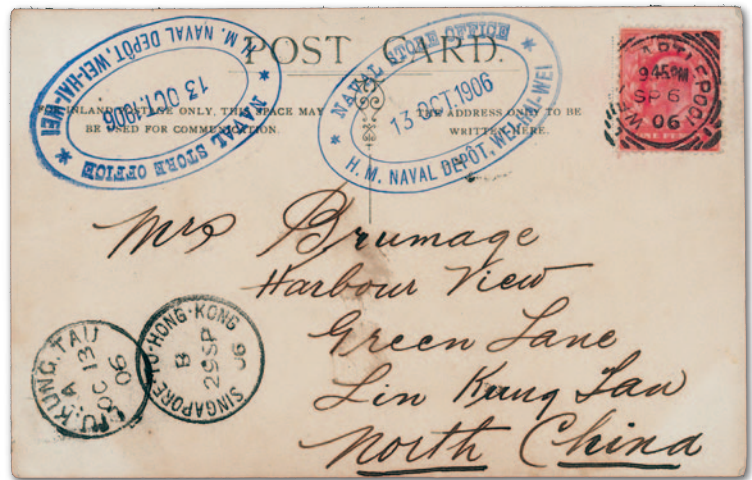 POST CARD.
NAVAL STORE OFFICE
13 OCT. 1906
H. M. NAVAL DEPÔT, WEI-HAI-WEI
NAVAL STORE OFFICE
13 OCT. 1906
H. M. NAVAL DEPÔT, WEI-HAI-WEI
INLAND POSTAGE ONLY, THIS SPACE MAY
BE USED FOR COMMUNICATION.
THE ADDRESS ONLY TO BE
WRITTEN HERE.
9 45 PM
SP 6
06
ONE PENNY
Mrs Brumage
Harbour View
Green Lane
Lin Kung Tau
North China
LIU. KUNG. TAU
A
OC 13
06
SINGAPORE TO HONG-KONG
B
29 SP
06